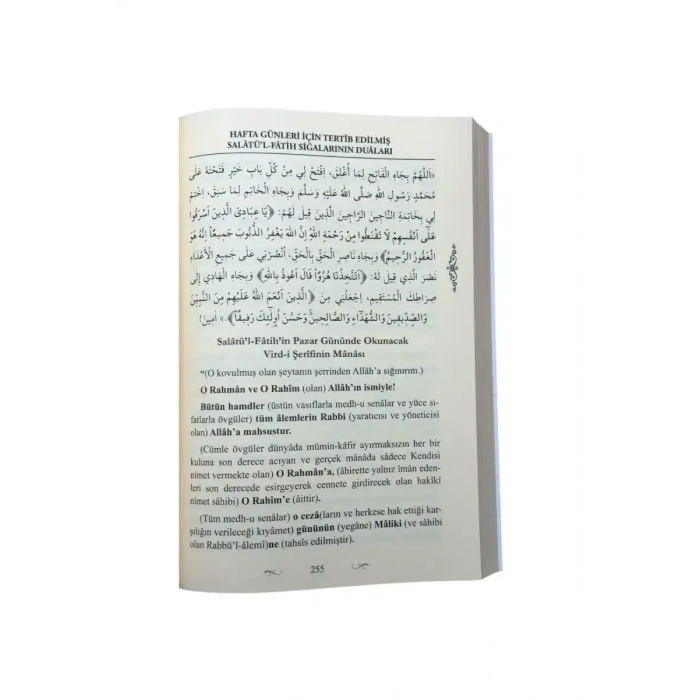 HAFTA GÜNLERİ İÇİN TERTİB EDİLMİŞ
SALÂTÜ'L-FÂTİH SÎĞALARININ DUÂLARI
«اَللّٰهُمَّ بِجَاهِ الْفَاتِحِ لِمَا أُغْلِقَ، اِفْتَحْ لِي مِنْ كُلِّ بَابِ خَيْرٍ فَتَحْتَهُ عَلَى
مُحَمَّدٍ رَسُولِ اللهِ صَلَّى اللهُ عَلَيْهِ وَسَلَّمَ وَبِجَاهِ الْخَاتِمِ لِمَا سَبَقَ، اِخْتِمْ
لِي بِخَاتِمَةِ النَّاجِينَ الرَّاجِينَ الَّذِينَ قِيلَ لَهُمْ: ﴿يَا عِبَادِيَ الَّذِينَ اَسْرَفُوا
عَلٰٓى اَنْفُسِهِمْ لَا تَقْنَطُوا مِنْ رَحْمَةِ اللّٰهِ اِنَّ اللّٰهَ يَغْفِرُ الذُّنُوبَ جَمِيعًا اِنَّهُ هُوَ
الْغَفُورُ الرَّحِيمُ﴾ وَبِجَاهِ نَاصِرِ الْحَقِّ بِالْحَقِّ، اُنْصُرْنِي عَلَى جَمِيعِ الْأَعْدَاءِ
نَصْرَ الَّذِي قِيلَ لَهُ: ﴿اَتَتَّخِذُنَا هُزُوًا قَالَ اَعُوذُ بِاللّٰهِ﴾ وَبِجَاهِ الْهَادِي إِلَى
صِرَاطِكَ الْمُسْتَقِيمِ، اِجْعَلْنِي مِنَ ﴿الَّذِينَ اَنْعَمَ اللّٰهُ عَلَيْهِمْ مِنَ النَّبِيّٖنَ
وَالصِّدِّيقِينَ وَالشُّهَدَٓاءِ وَالصَّالِحِينَ وَحَسُنَ اُولٰٓئِكَ رَفِيقًا﴾.» اٰمِينَ!
Salâtü'l-Fâtih'in Pazar Gününde Okunacak
Vird-i Şerîfinin Mânâsı
“(O kovulmuş olan şeytanın şerrinden Allâh'a sığınırım.)
O Rahmân ve O Rahîm (olan) Allâh'ın ismiyle!
Bütün hamdler (üstün vasıflarla medh-u senâlar ve yüce sı-
fatlarla övgüler) tüm âlemlerin Rabbi (yaratıcısı ve yöneticisi
olan) Allâh'a mahsustur.
(Cümle övgüler dünyâda mümin-kâfir ayırmaksızın her bir
kuluna son derece acıyan ve gerçek mânâda sâdece Kendisi
nîmet vermekte olan) O Rahmân'a, (âhirette yalnız îmân eden-
leri son derecede esirgeyerek cennete girdirecek olan hakîkî
nîmet sâhibi) O Rahîm'e (âittir).
(Tüm medh-u senâlar) o cezâ(ların ve herkese hak ettiği kar-
şılığın verileceği kıyâmet) gününün (yegâne) Mâliki (ve sâhibi
olan Rabbü'l-âlemî)ne (tahsîs edilmiştir).
255